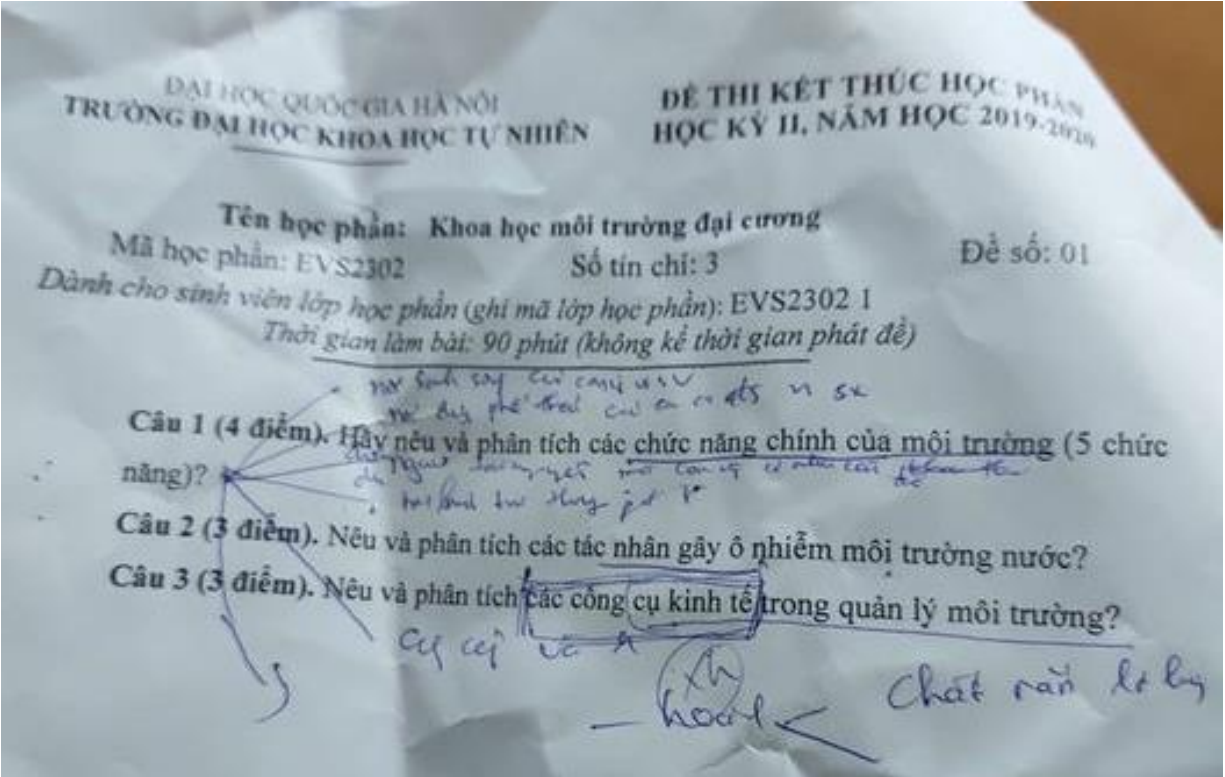 ĐẠI HỌC QUỐC GIA HÀ NỘI
TRƯỜNG ĐẠI HỌC KHOA HỌC TỰ NHIÊN
ĐỀ THI KẾT THÚC HỌC PHẦN
HỌC KỲ II, NĂM HỌC 2019-2020
Tên học phần: Khoa học môi trường đại cương
Mã học phần: EVS2302 Số tín chỉ: 3 Đề số: 01
Dành cho sinh viên lớp học phần (ghi mã lớp học phần): EVS2302 1
Thời gian làm bài: 90 phút (không kể thời gian phát đề)
Câu 1 (4 điểm). Hãy nêu và phân tích các chức năng chính của môi trường (5 chức
năng)?
Câu 2 (3 điểm). Nêu và phân tích các tác nhân gây ô nhiễm môi trường nước?
Câu 3 (3 điểm). Nêu và phân tích các công cụ kinh tế trong quản lý môi trường?
xh
Chất rắn lơ